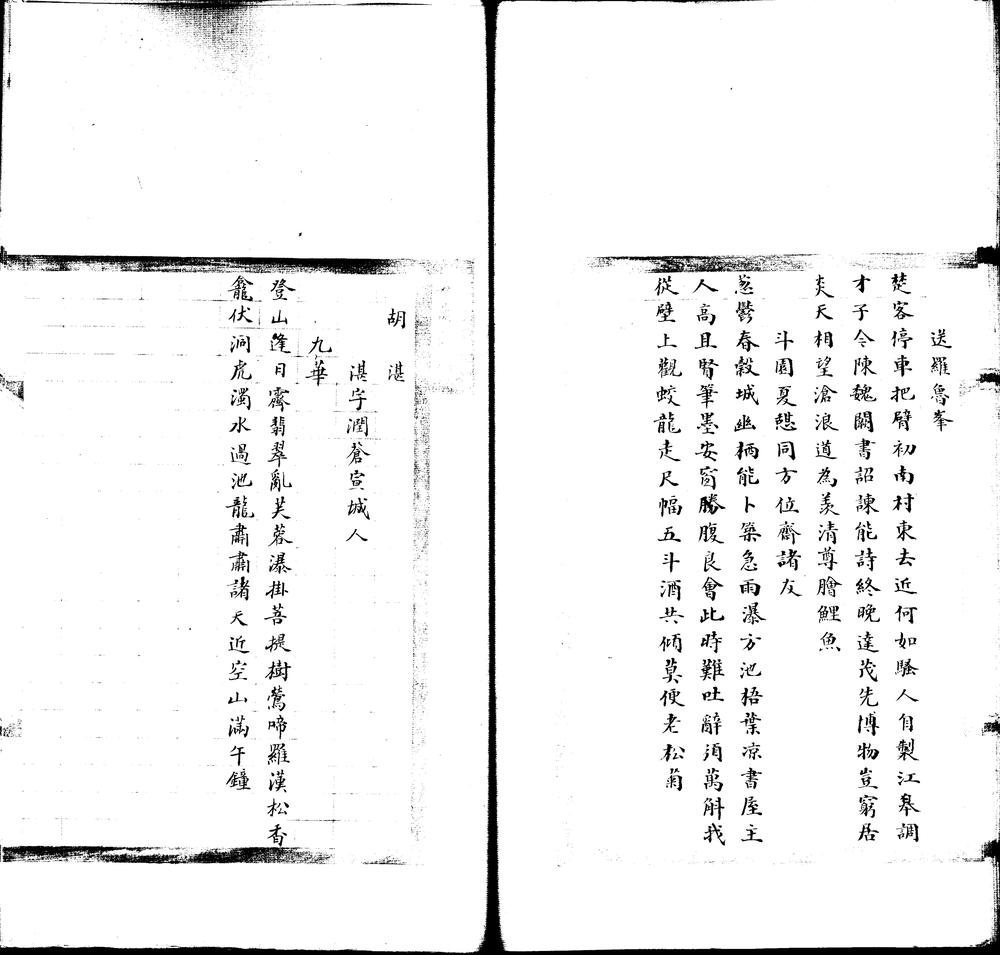 送羅魯峯
楚客停車把臂初南村東去近何如騷人自製江皋調
才子令陳魏闕書詔諫能詩終晚達茂先博物豈窮居
炎天相望滄浪道為羨清尊膾鯉魚
斗園夏憇同方位齋諸友
葱鬱春穀城幽栖能卜築急雨瀑方池梧葉凉書屋主
人高且賢筆墨安窗勝腹良會此時難吐辭須萬斛我
從壁上觀蛟龍走尺幅五斗酒共傾莫便老松菊
胡湛
湛字潤蒼宣城人
九華
登山逢日霽翡翠亂芙蓉瀑掛菩提樹鶯啼羅漢松香
龕伏洞虎濁水過池龍肅肅諸天近空山滿午鐘